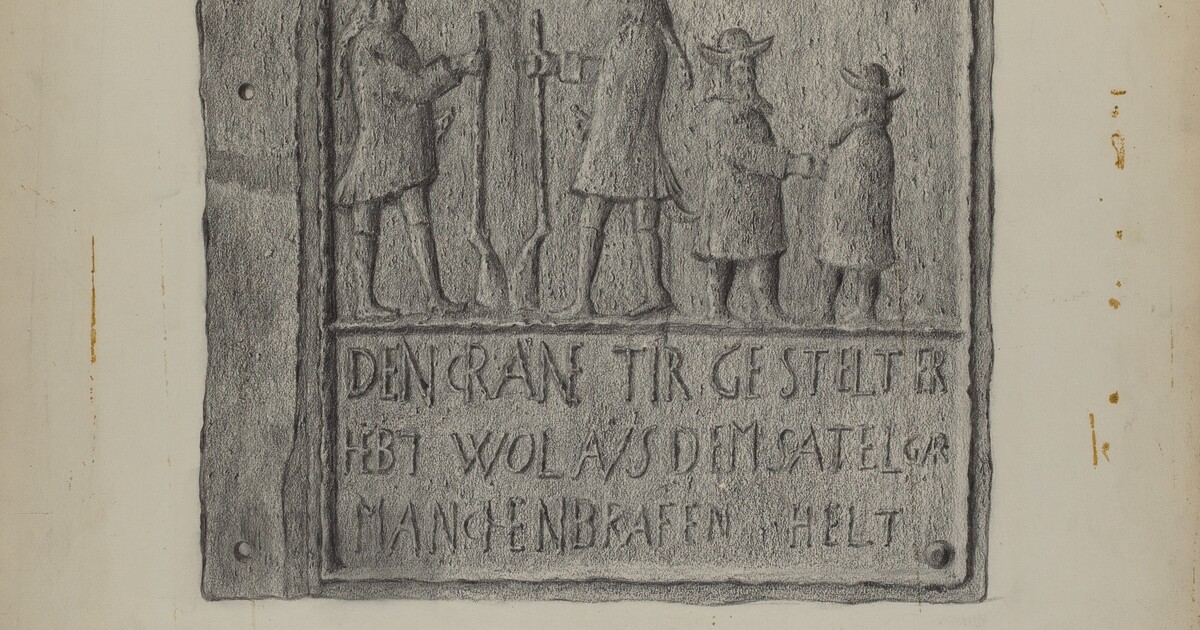 DEN CRANE TIR GESTELT ER
HEBT WOL AUS DEM SATEL GAR
MANCHEN BRAFEN HELT